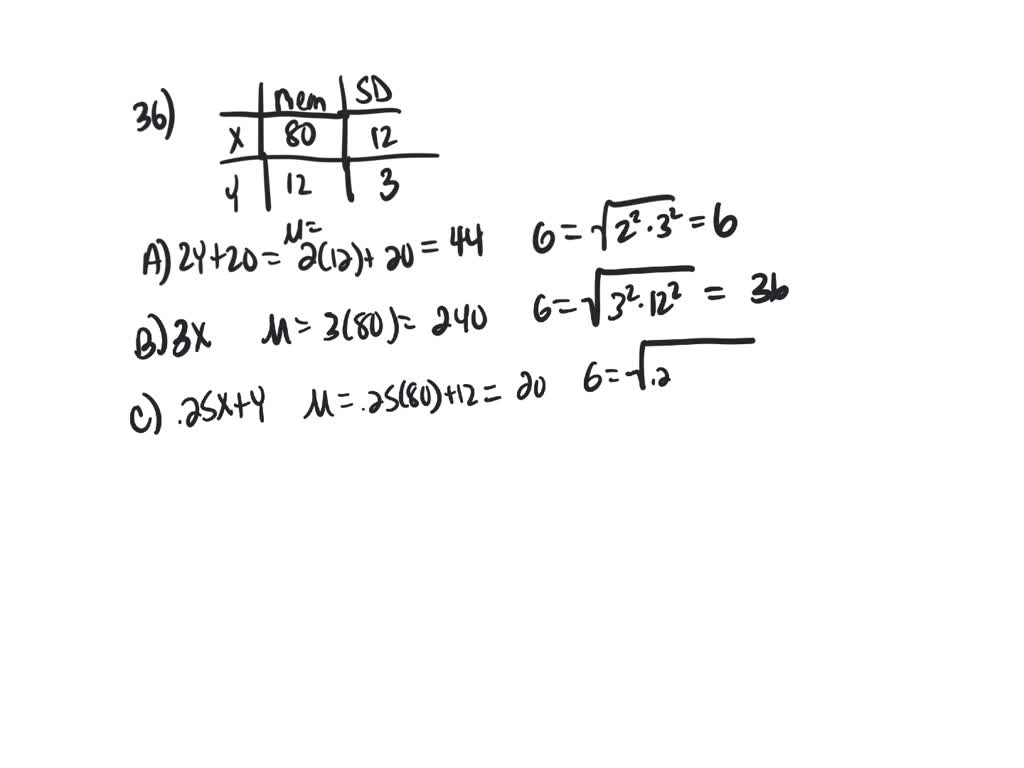 36)
Mean SD
X 80 12
Y 12 3
A) 2Y+20 = μ= 2(12)+ 20 = 44 6 = √2²·3² = 6
B) 3X μ = 3(80) = 240 6 = √3²·12² = 36
C) .25X+Y μ = .25(80)+12 = 20 6 = √.2